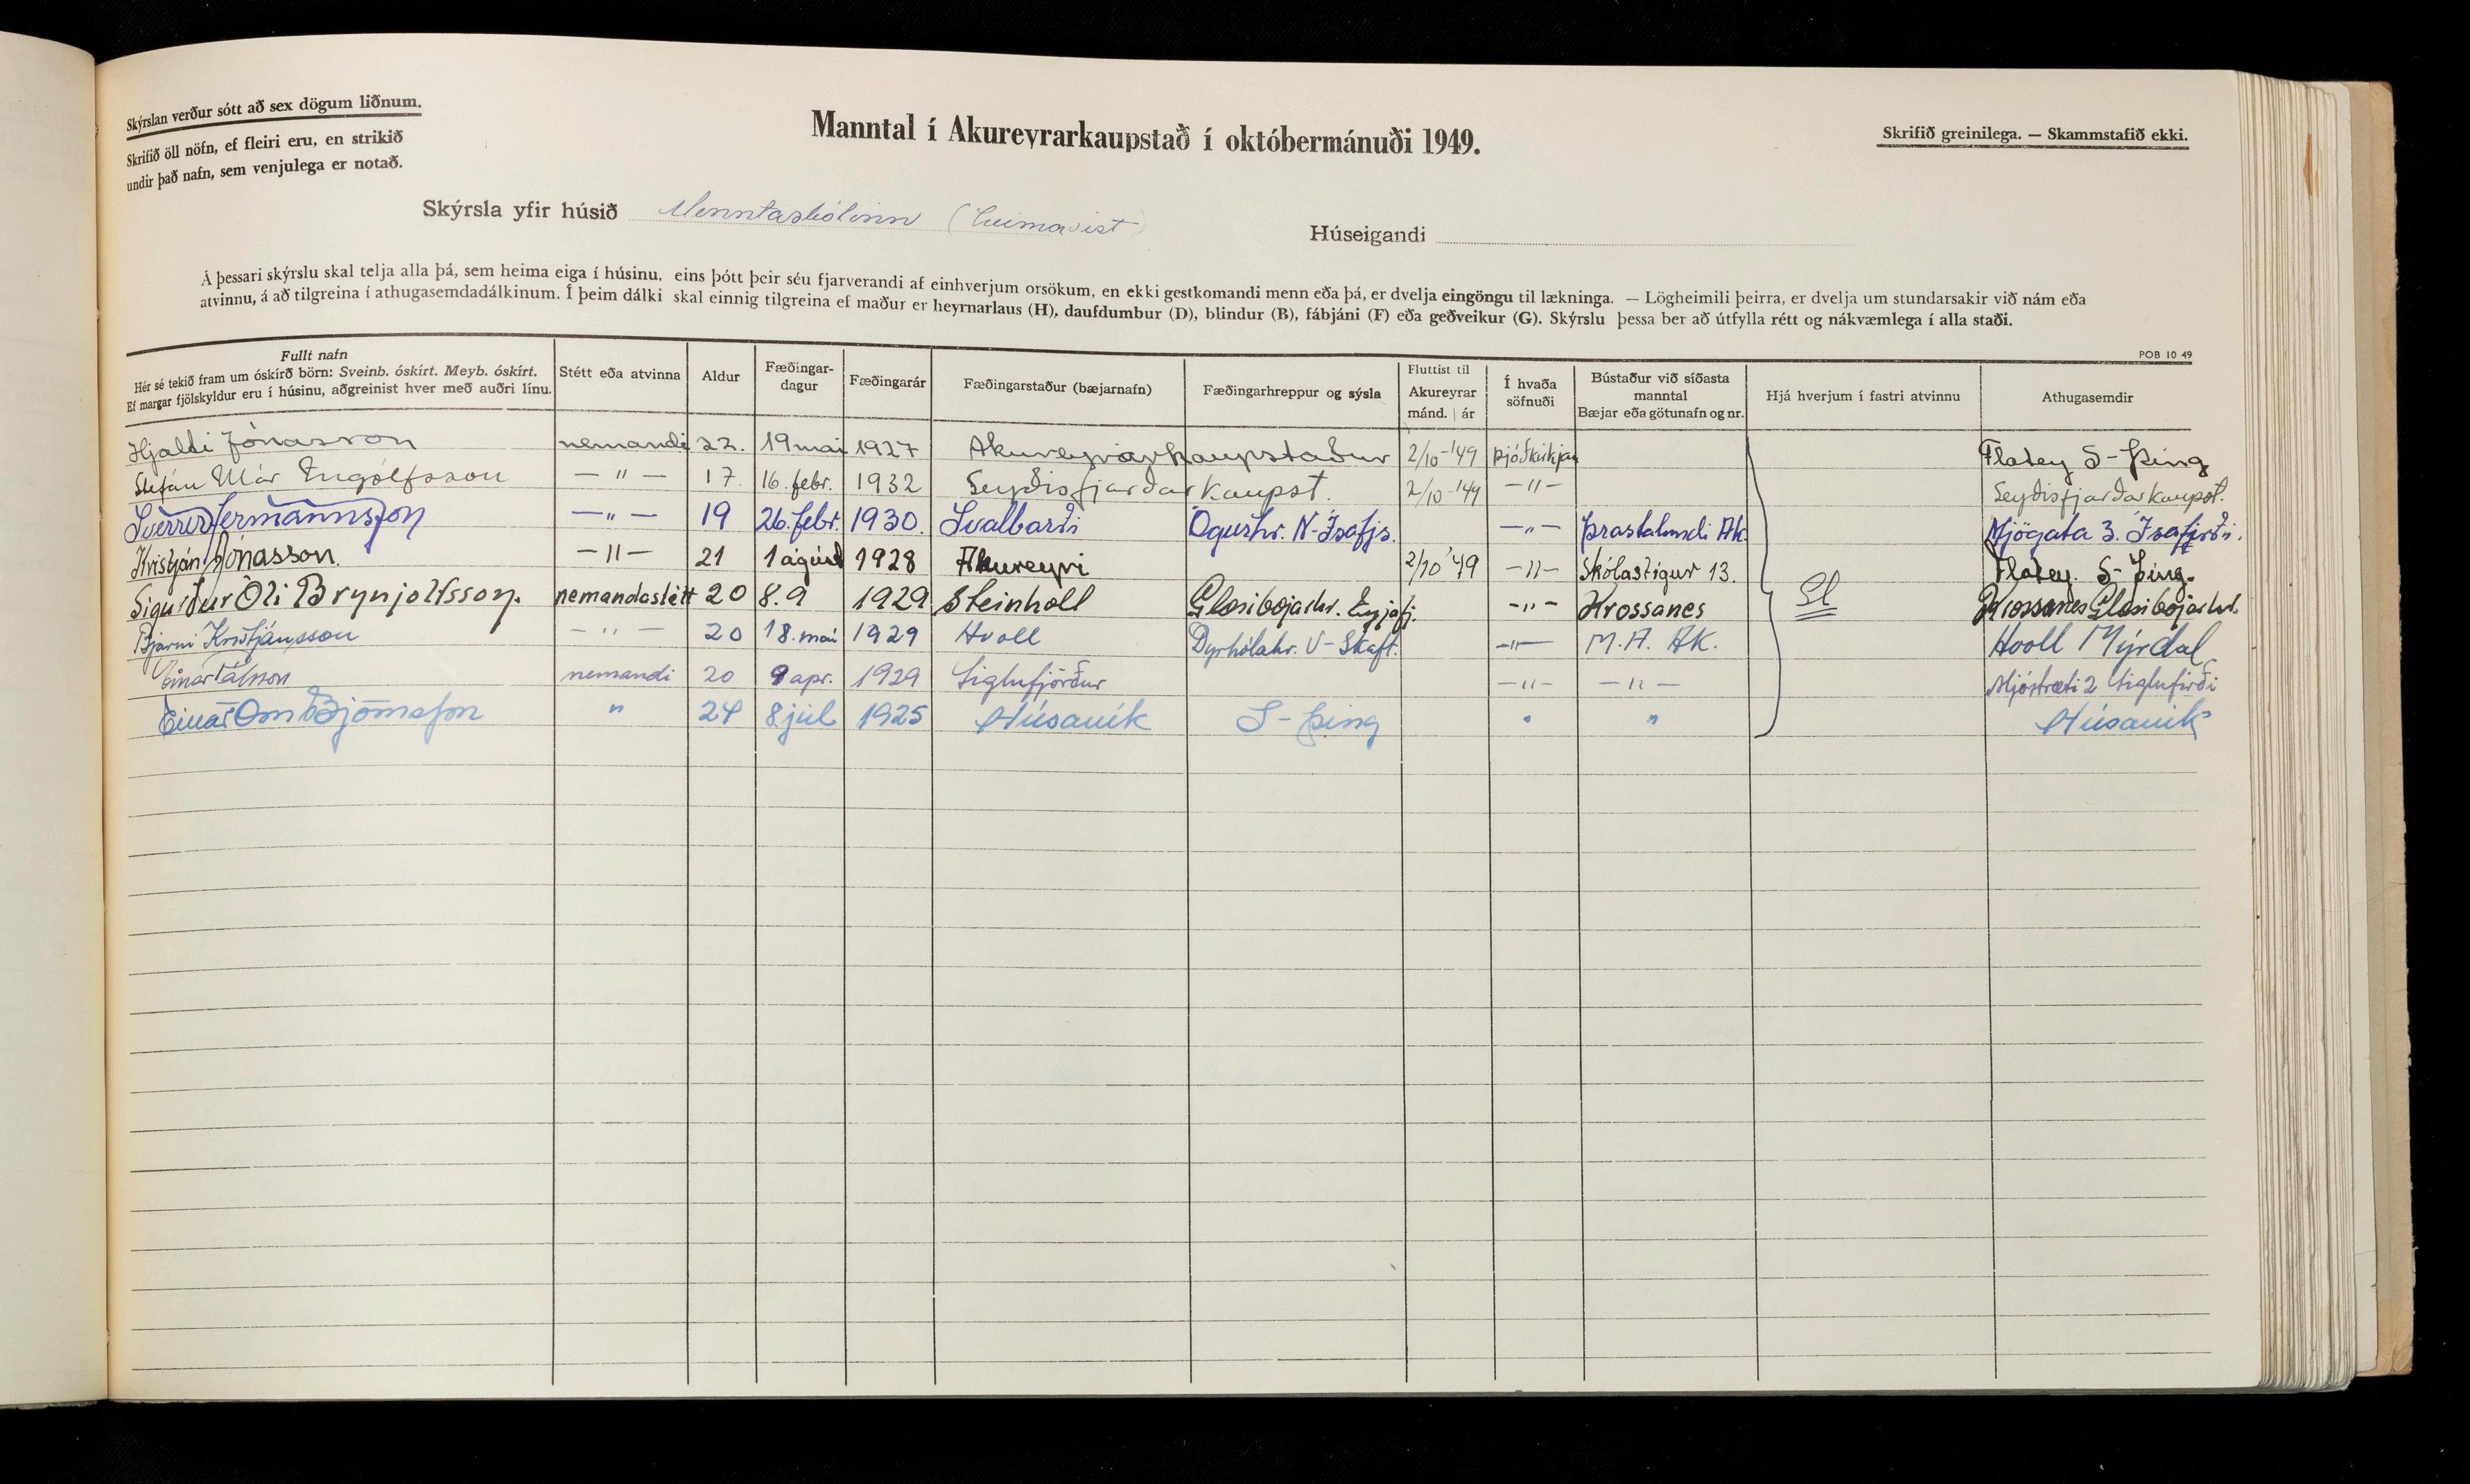 Skýrslan verður sótt að sex dögum liðnum.
Skrifið öll nöfn, ef fleiri eru, en strikið
undir það nafn, sem venjulega er notað.
Manntal í Akureyrarkaupstað í októbermánuði 1949.
Skrifið greinilega. — Skammstafið ekki.
Skýrsla yfir húsið Menntaskólinn (heimavist)
Húseigandi
Á þessari skýrslu skal telja alla þá, sem heima eiga í húsinu, eins þótt þeir séu fjarverandi af einhverjum orsökum, en ekki gestkomandi menn eða þá, er dvelja eingöngu til lækninga. — Lögheimili þeirra, er dvelja um stundarsakir við nám eða
atvinnu, á að tilgreina í athugasemdadálkinum. Í þeim dálki skal einnig tilgreina ef maður er heyrnarlaus (H), daufdumbur (D), blindur (B), fábjáni (F) eða geðveikur (G). Skýrslu þessa ber að útfylla rétt og nákvæmlega í alla staði.
POB 10 49
Fullt nafn
Hér sé tekið fram um óskírð börn: Sveinb. óskírt. Meyb. óskírt.
Ef margar fjölskyldur eru í húsinu, aðgreinist hver með auðri línu.
Stétt eða atvinna
Aldur
Fæðingar-
dagur
Fæðingarár
Fæðingarstaður (bæjarnafn)
Fæðingarhreppur og sýsla
Fluttist til
Akureyrar
mánd. | ár
Í hvaða
söfnuði
Bústaður við síðasta
manntal
Bæjar eða götunafn og nr.
Hjá hverjum í fastri atvinnu
Athugasemdir
Hjalti Jónasson nemandi 22. 19 mai 1927 Akureyrarkaupstaður 2/10-'49 Þjóðkirkjan Flatey S-Þing
Stefán Már Ingólfsson — " — 17. 16. febr. 1932 Seyðisfjarðarkaupst. 2/10-'49 — " — Seyðisfjarðarkaupst.
Sverrir Hermannsson — " — 19 26. febr. 1930. Svalbarði Ögurhr. N-Ísafjs. — " — Þrastalundi Ak. Mjógata 3. Ísafirði.
Kristján Jónasson. — " — 21 1 ágúst 1928 Akureyri 2/10 '49 — " — Skólastígur 13. Flatey. S-Þing.
Sigurður Óli Brynjólfsson. nemandastétt 20 8.9 1929 Steinholt Glæsibæjarhr. Eyjafj. — " — Krossanes Krossanes Glæsibæjarhr.
Bjarni Kristjánsson — " — 20 18. maí 1929 Hvoll Dyrhólahr. V-Skaft. — " — M.A. AK. Hvoll Mýrdal
Einar Pálsson nemandi 20 9 apr. 1929 Siglufjörður — " — — " — Mjóstræti 2 Siglufirði
Einar Örn Björnsson " 24 8 júl 1925 Húsavík S-Þing " " Húsavík